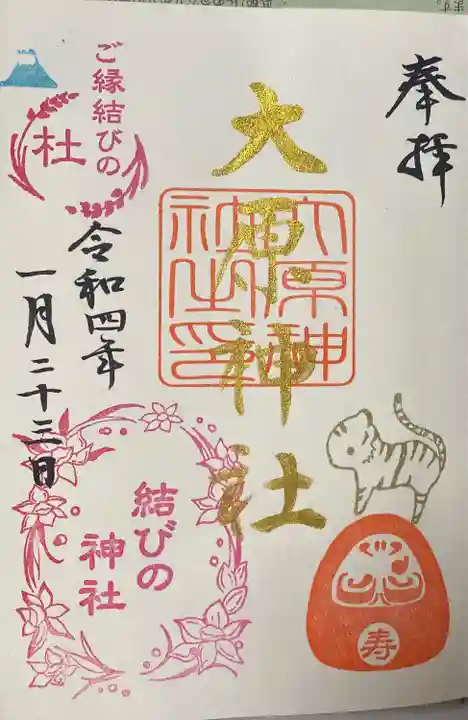 奉拝
大原神社
大原神社之印
ご縁結びの
杜
令和四年
一月二十三日
結びの
神社
寿